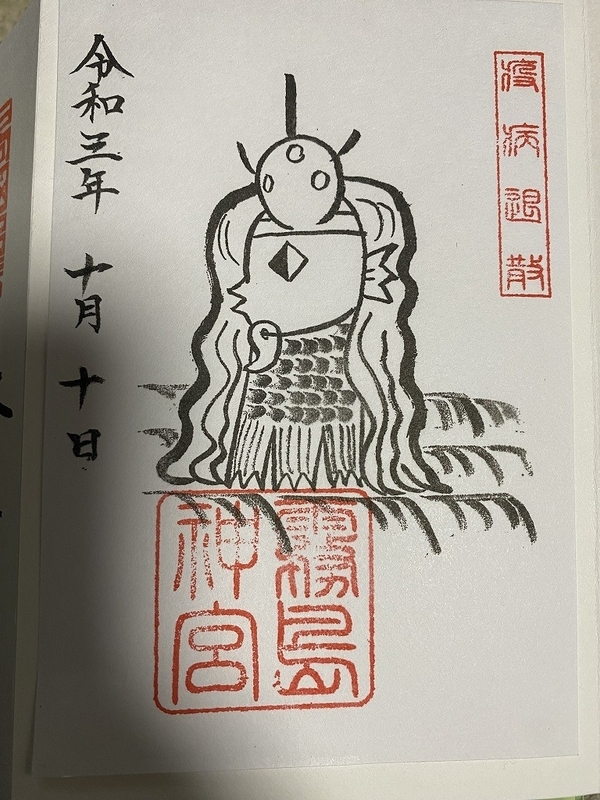 疫病退散
霧島
神宮
令和三年 十月 十日